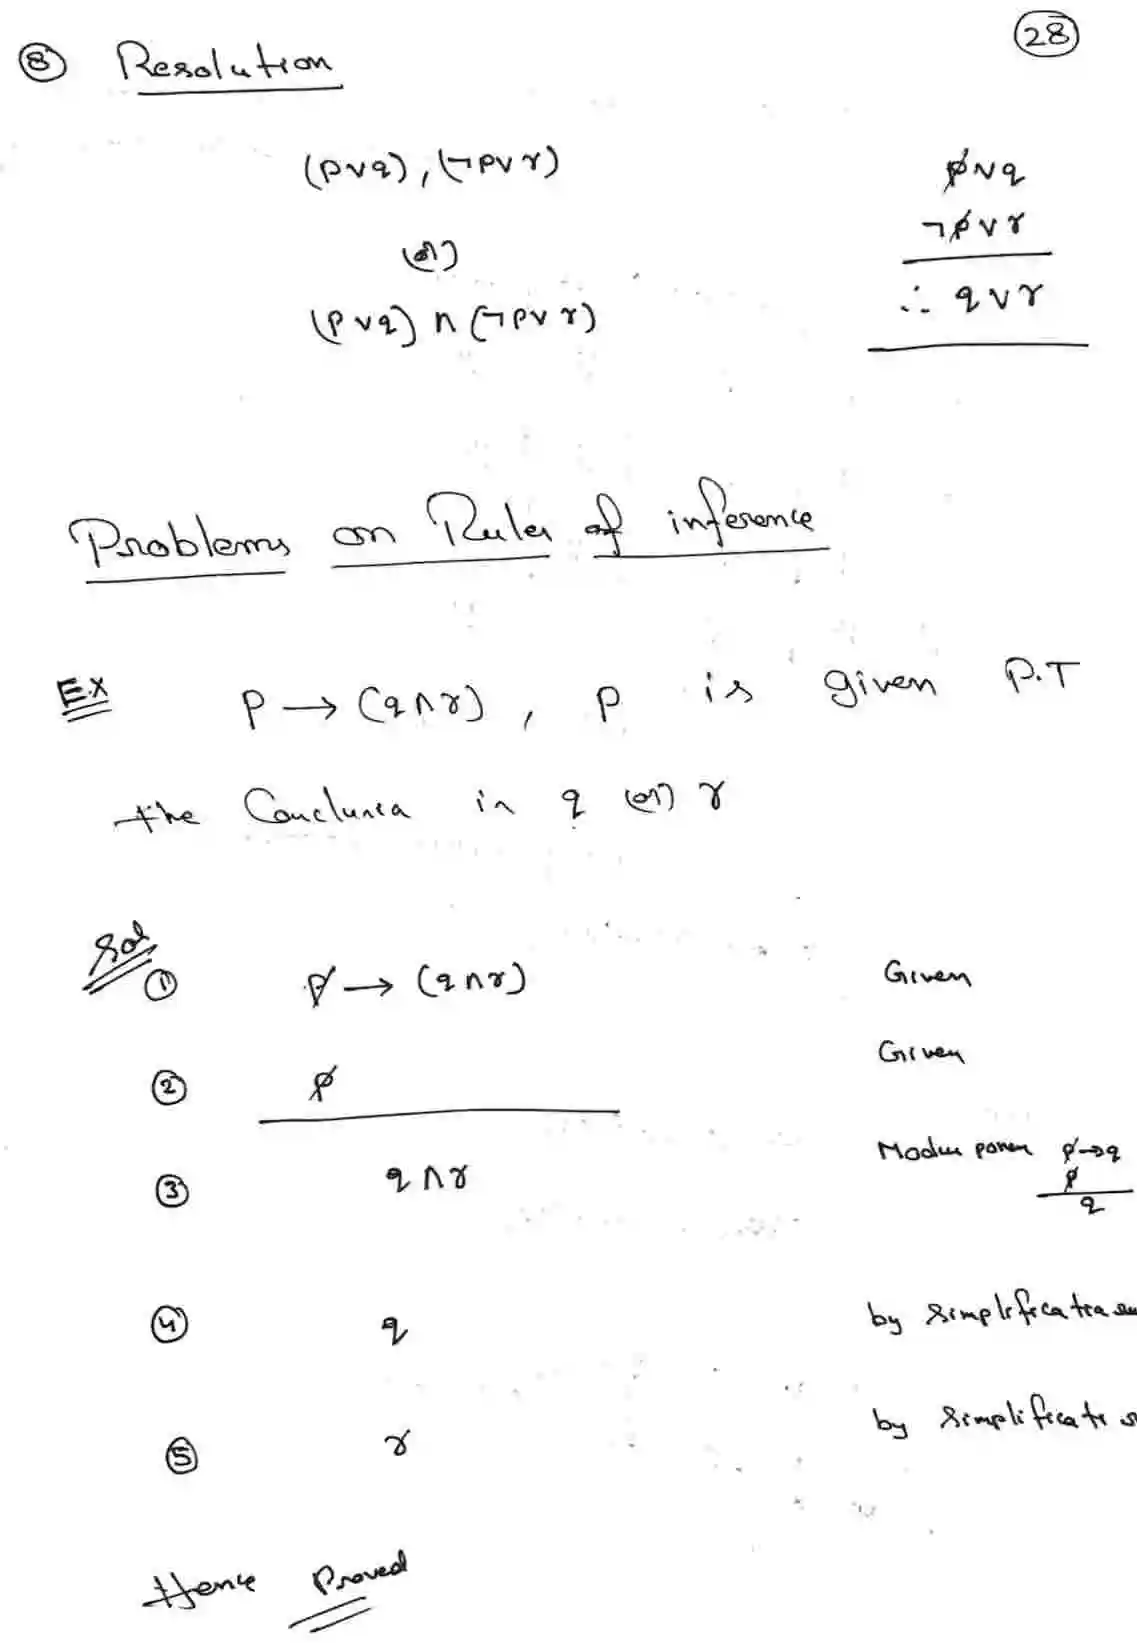 (28)
(8) Resolution
(p∨q), (¬p∨r)
(or)
(p∨q) ∧ (¬p∨r)
p∨q
¬p∨r
∴ q∨r
Problems on Rules of inference
Ex p → (q∧r) , p is given P.T
the Conclusion is q (or) r
Sol
(1) p → (q∧r) Given
(2) p Given
(3) q∧r Modus ponens p→q
p
q
(4) q by simplification
(5) r by simplificati
Hence Proved